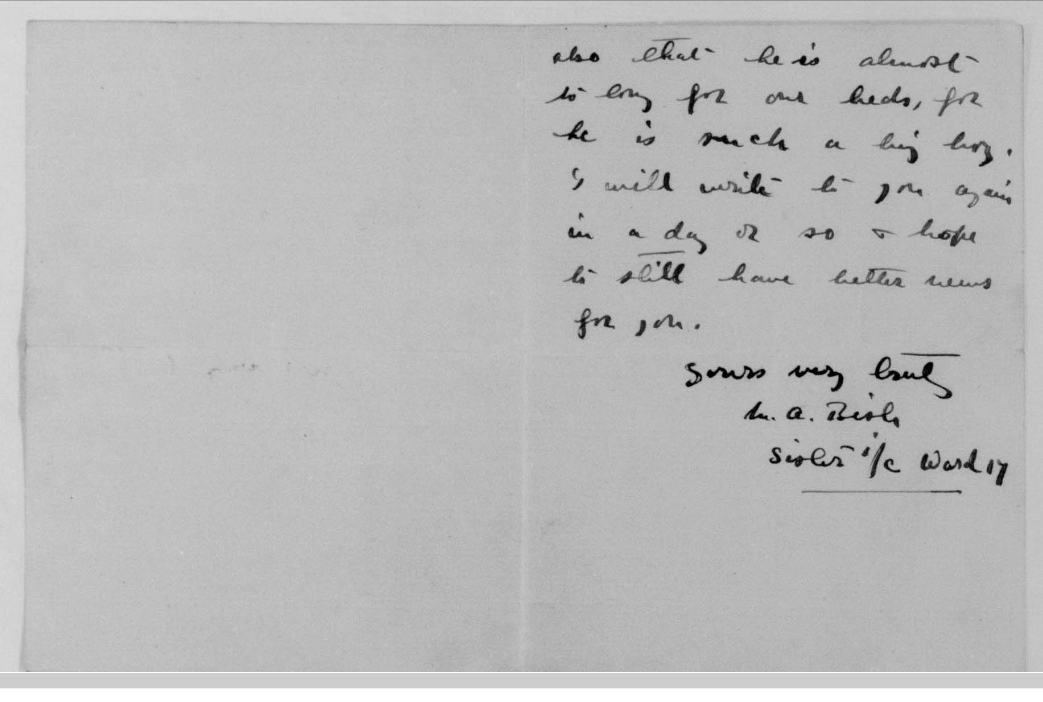 also that he is almost
to long for our beds, for
he is such a big boy.
I will write to you again
in a day or so & hope
to still have better news
for you.
yours very truly
M. A. Bish
Sister i/c Ward 17